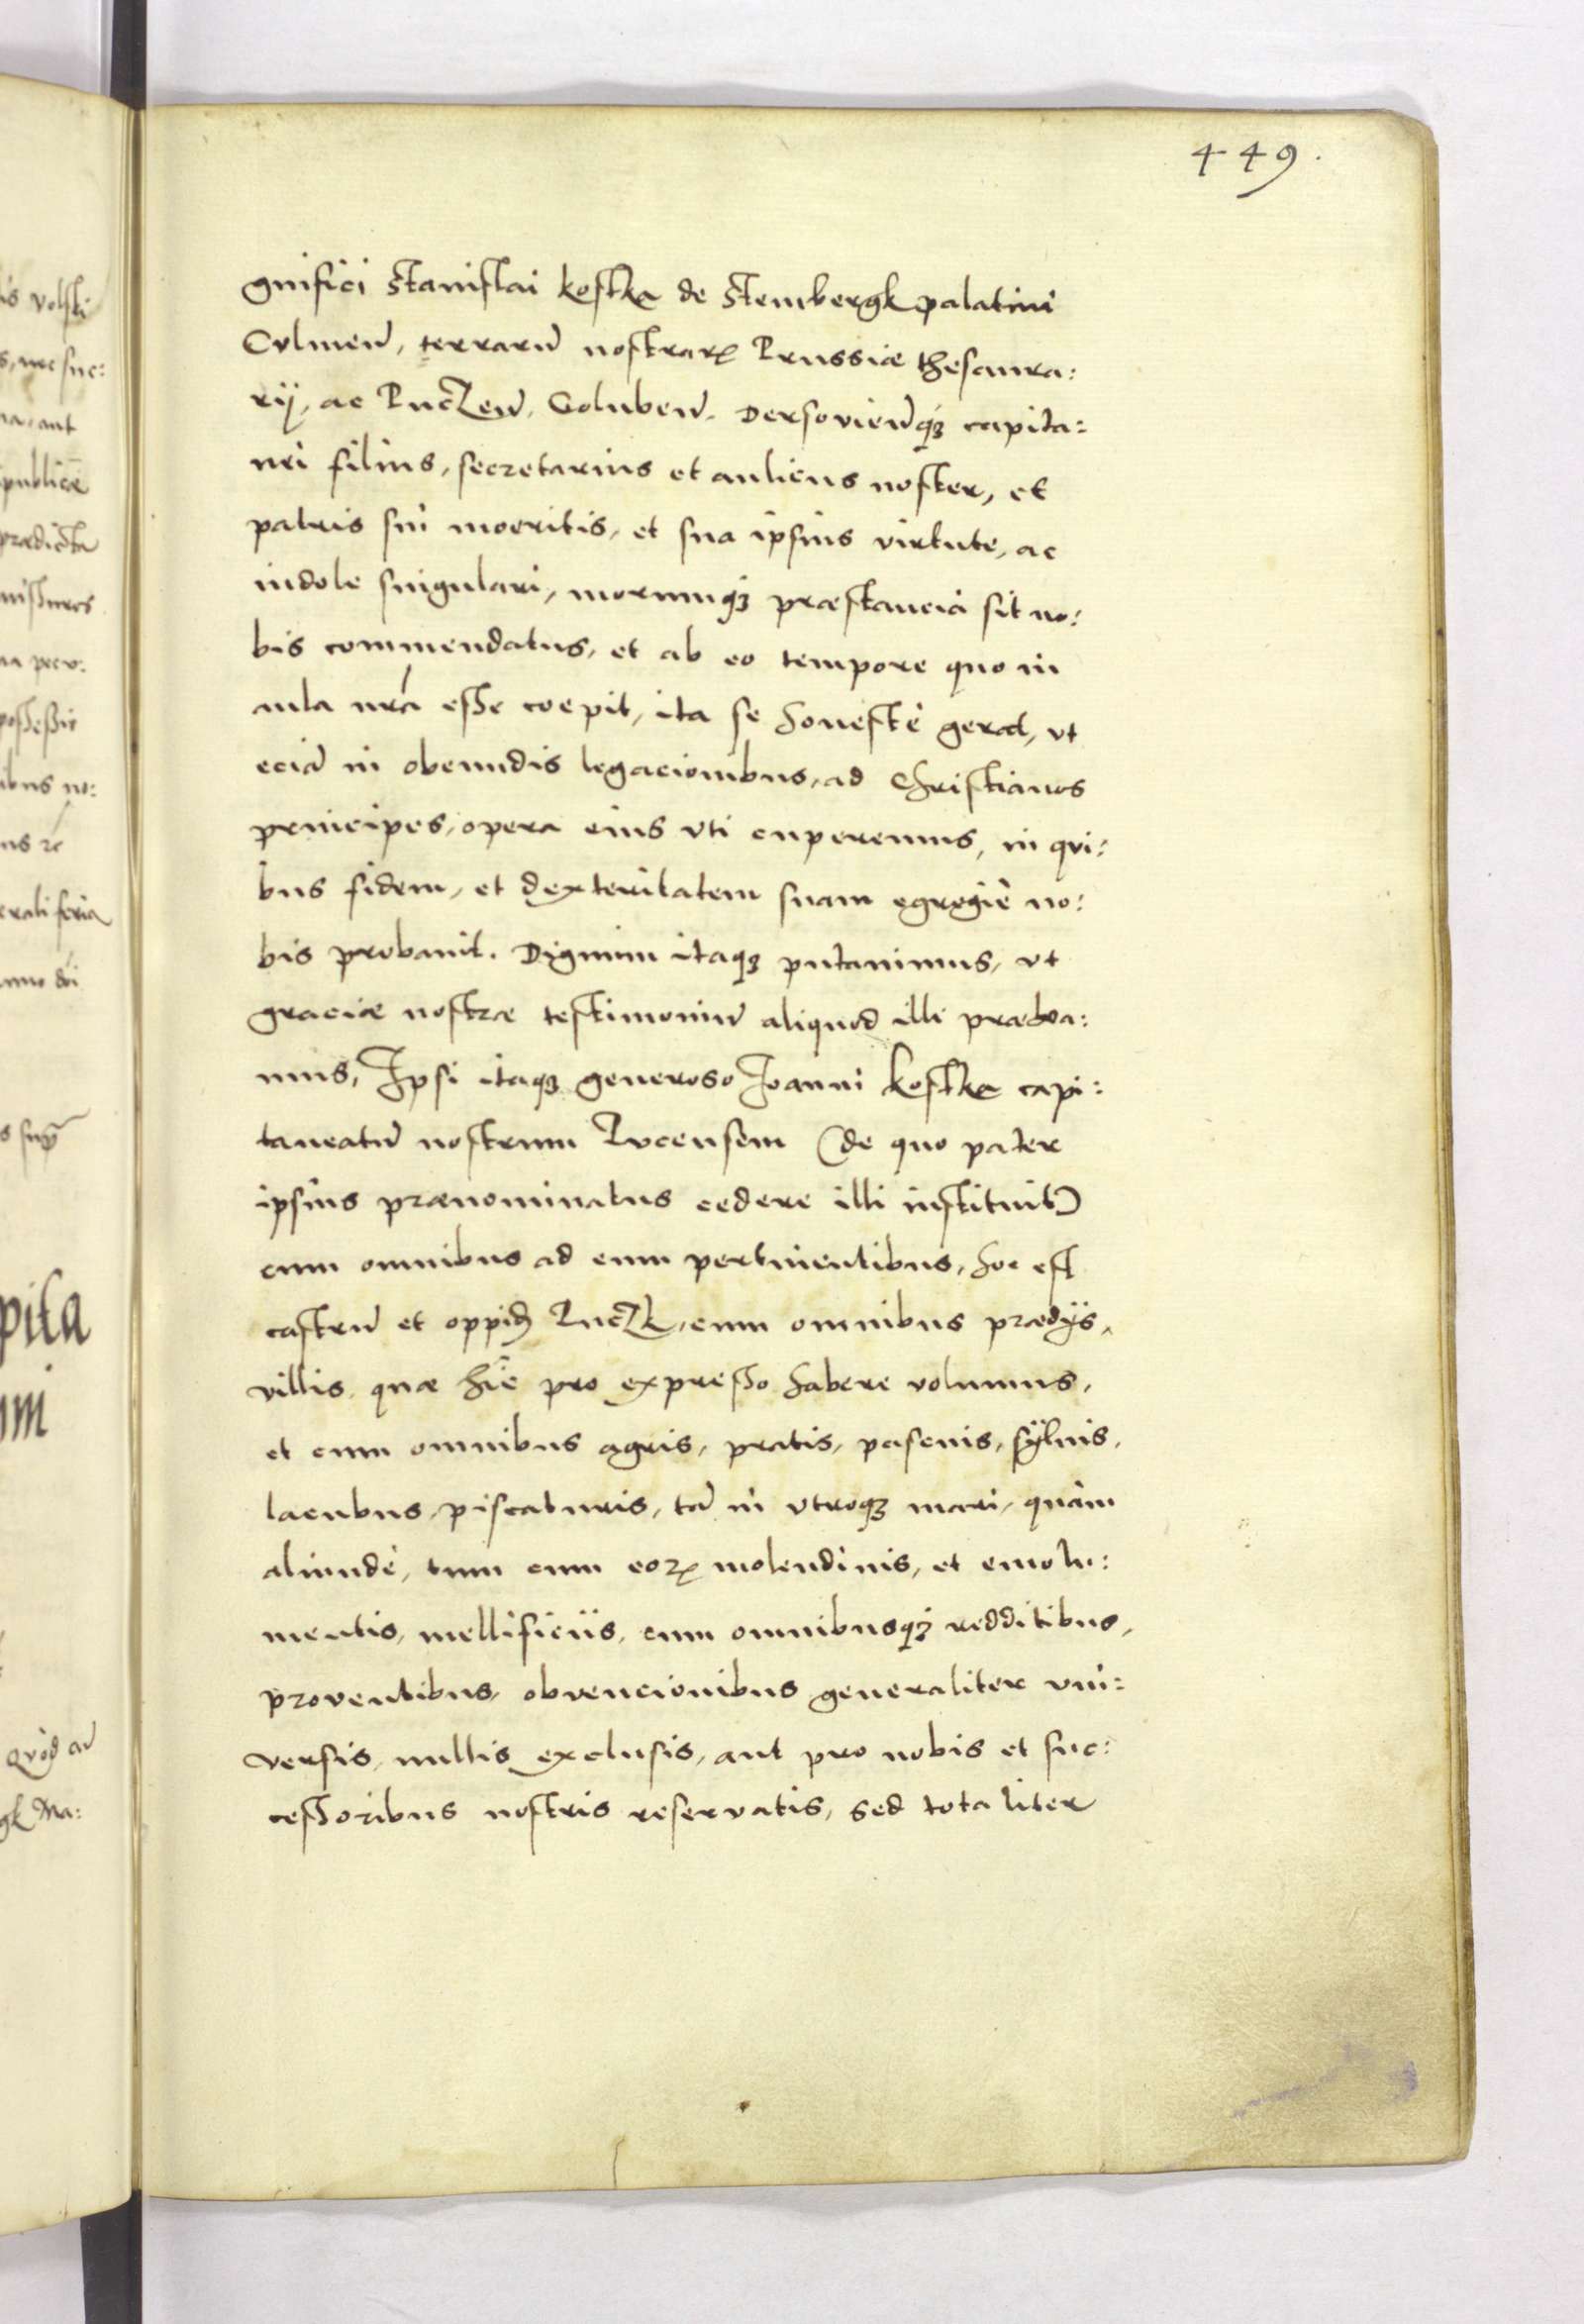 449.
gnifici Stanislai Kostka de Stembergk palatini
Culmen̄, terrarū nostrarꝝ Prussiæ thesaura:
rij, ac Puczen̄, Goluben̄. Dersovien̄qꝫ capita:
nei filius, secretarius et aulicus noster, et
patris sui moeritis, et sua ipsius virtute, ac
indole singulari, morumqꝫ præstancia sit no:
bis commendatus, et ab eo tempore quo in
aula nrā esse coepit, ita se honestè gerat, ut
eciā in obeundis legacionibus, ad Christianos
principes, opera eius uti cuperemus, in qui:
bus fidem, et dexteritatem suam egregiè no:
bis probauit. Dignum itaqꝫ putauimus, ut
graciæ nostræ testimoniū aliquod illi præbea:
mus, Ipsi itaqꝫ generoso Joanni Kostka capi:
taneatū nostrum Pucensem (de quo pater
ipsius prænominatus cedere illi instituit)
cum omnibus ad eum pertinentibus, hoc est
castrū et oppidū Puczk, cum omnibus prædijs,
villis, quæ hîc pro expresso habere volumus,
et cum omnibus agris, pratis, pascuis, sÿluis,
lacubus, piscaturis, tā in utroqꝫ mari, quàm
aliunde, tum cum eorꝝ molendinis, et emolu:
mentis, mellificiis, cum omnibusqꝫ redditibus,
proventibus, obvencionibus generaliter uni:
versis, nullis exclusis, aut pro nobis et suc:
cessoribus nostris reservatis, sed totaliter